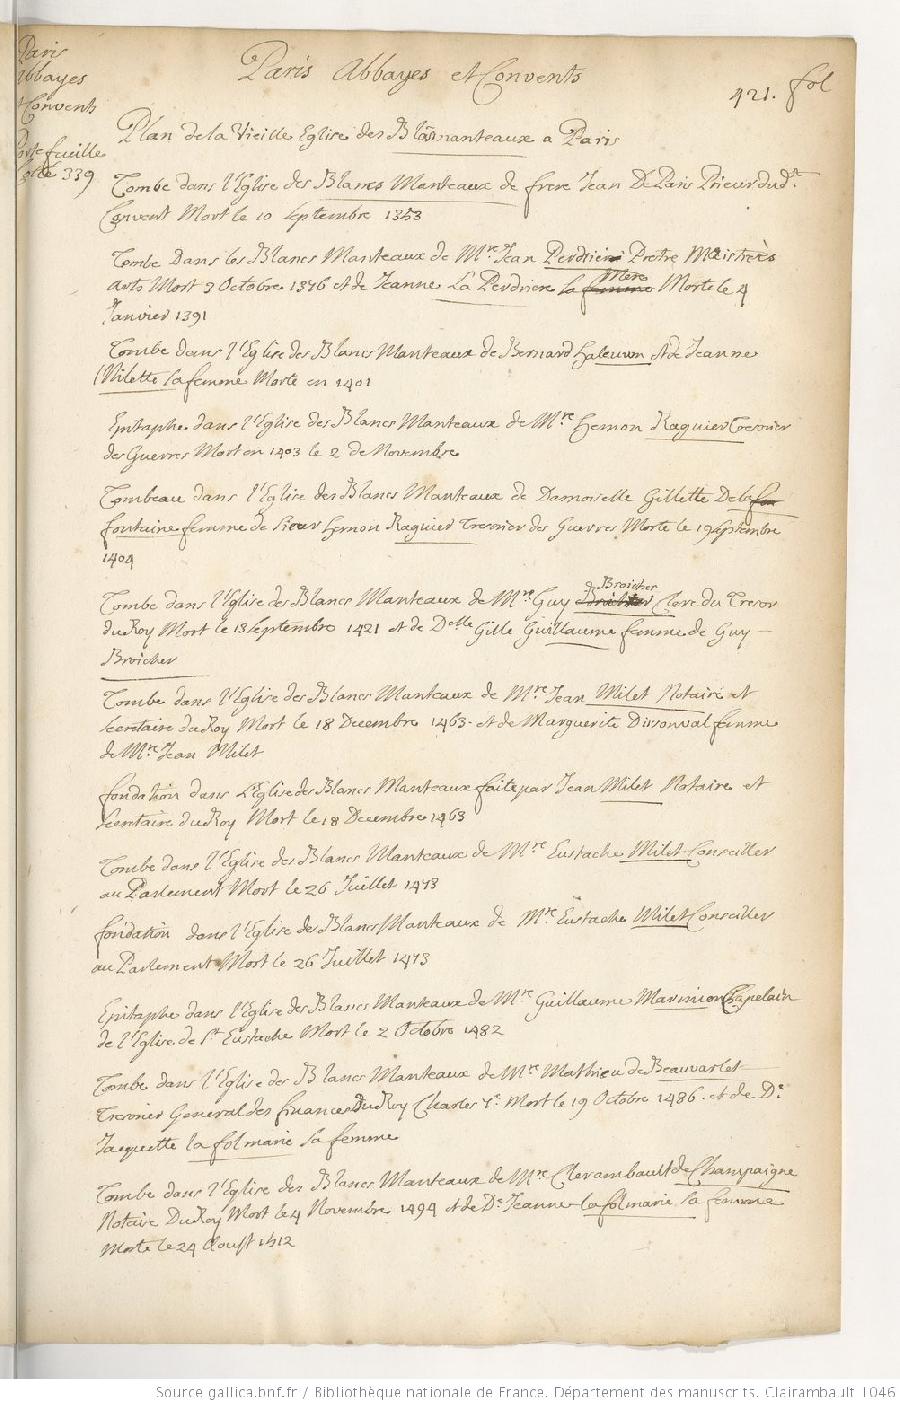 Paris
Abbayes
et Convents
Portefeuille
Cotté 339
Paris Abbayes et Convents
421. fol
Plan de la Vieille Eglise des Blãnanteaux a Paris
Tombe dans l'Eglise des Blancs Manteaux de frere Jean De Paris Prieur dud.t
Convent Mort le 10 Septembre 1353
Tombe Dans les Blancs Manteaux de M.re Jean Perdrier Pretre Maistre es
arts Mort 9 Octobre 1376 et de Jeanne La Perdriere sa femme Mere Morte le 4
Janvier 1391
Tombe dans l'Eglise des Blancs Manteaux de Bernard et de Jeanne
Milette sa femme Morte en 1401
Epitaphe dans l'Eglise des Blancs Manteaux de M.re hemon Raguier Tresorier
des Guerres Mort en 1403 le 2 de Novembre
Tombeau dans l'Eglise des Blancs Manteaux de Damoiselle Gillette De la fon
fontaine femme de Sieur hemon Raguier Tresorier des Guerres Morte le 19 Septembre
1404
Tombe dans l'Eglise des Blancs Manteaux de M.re Guy Broicher Clerc du Tresor
du Roy Mort le 13 Septembre 1421 et de D.elle Gille Guillaume femme de Guy
Broicher
Tombe dans l'Eglise des Blancs Manteaux de M.re Jean Milet Notaire et
Secretaire du Roy Mort le 18 Decembre 1463 et de Marguerite femme
de M.re Jean Milet
fondation dans L'Eglise des Blancs Manteaux faite par Jean Milet Notaire et
Secretaire du Roy Mort le 18 Decembre 1463
Tombe dans l'Eglise des Blancs Manteaux de M.re Eustache Milet Conseiller
au Parlement Mort le 26 Juillet 1473
fondation dans l'Eglise des Blancs Manteaux de M.re Eustache Milet Conseiller
au Parlement Mort le 26 Juillet 1473
Epitaphe dans l'Eglise des Blancs Manteaux de M.re Guillaume Marinion Chapelain
de l'Eglise de S.t Eustache Mort le 2 Octobre 1482
Tombe dans l'Eglise des Blancs Manteaux de M.re Mathieu de Beauvarlet
Tresorier General des finances Du Roy Charles 7.e Mort le 19 Octobre 1486. et de D.e
Jaquette la folmarie sa femme
Tombe dans l'Eglise des Blancs Manteaux de M.re Clerambault de Champaigne
Notaire Du Roy Mort le 4 Novembre 1494 et de D.e Jeanne la folmarie sa femme
Morte le 24 Aoust 1512
Source gallica.bnf.fr / Bibliothèque nationale de France. Département des manuscrits. Clairambault 1046